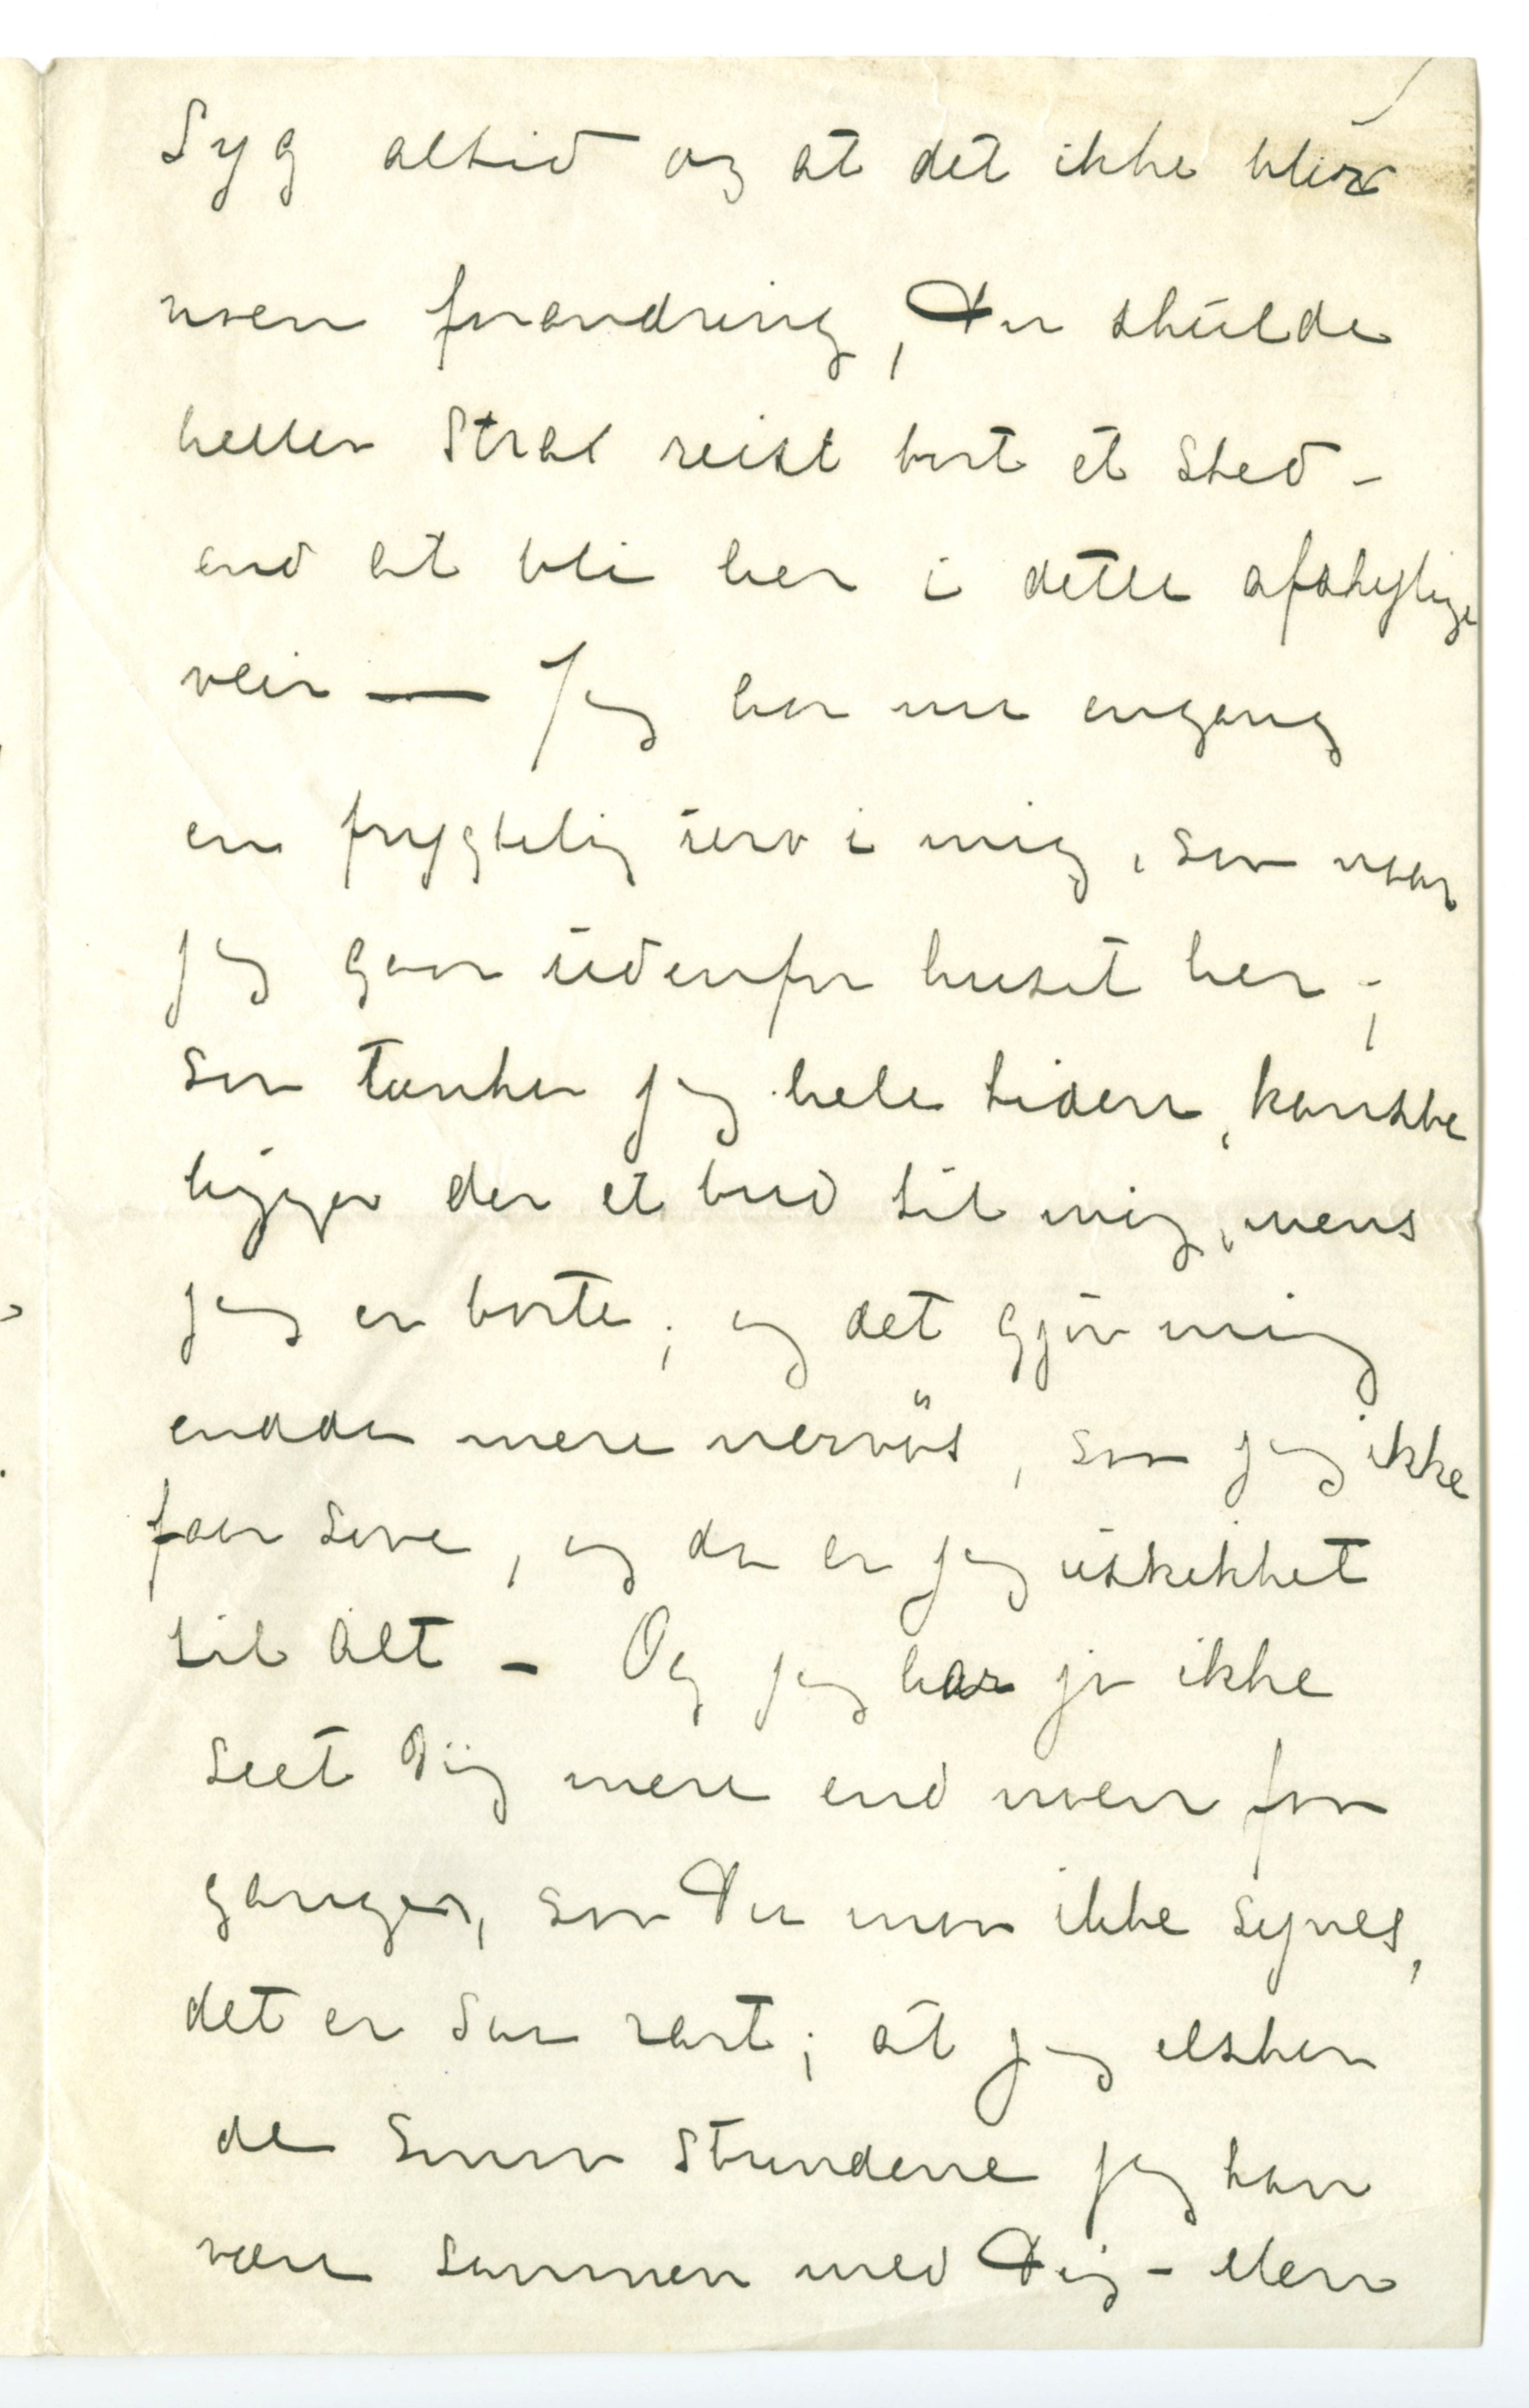 syg altid og at det ikke blir
noen forandring, Du skulde
heller strax reist bort et sted –
end at bli her i dette afskylige
veir — Jeg har nu engang
en frygtelig uro i mig, saa naar
jeg gaar udenfor huset her;
saa tænker jeg hele tiden, kanske
ligger der et bud til mig, mens
jeg er borte; og det gjør mig
endda mere nervøs, saa jeg ikke
faar sove, og da er jeg uskikket
til alt – Og jeg har jo ikke
seet Dig mere end noen faa
ganger, saa Du maa ikke synes,
det er saa rart; at jeg elsker
de smaa stundene jeg kan
være sammen med Dig – Men